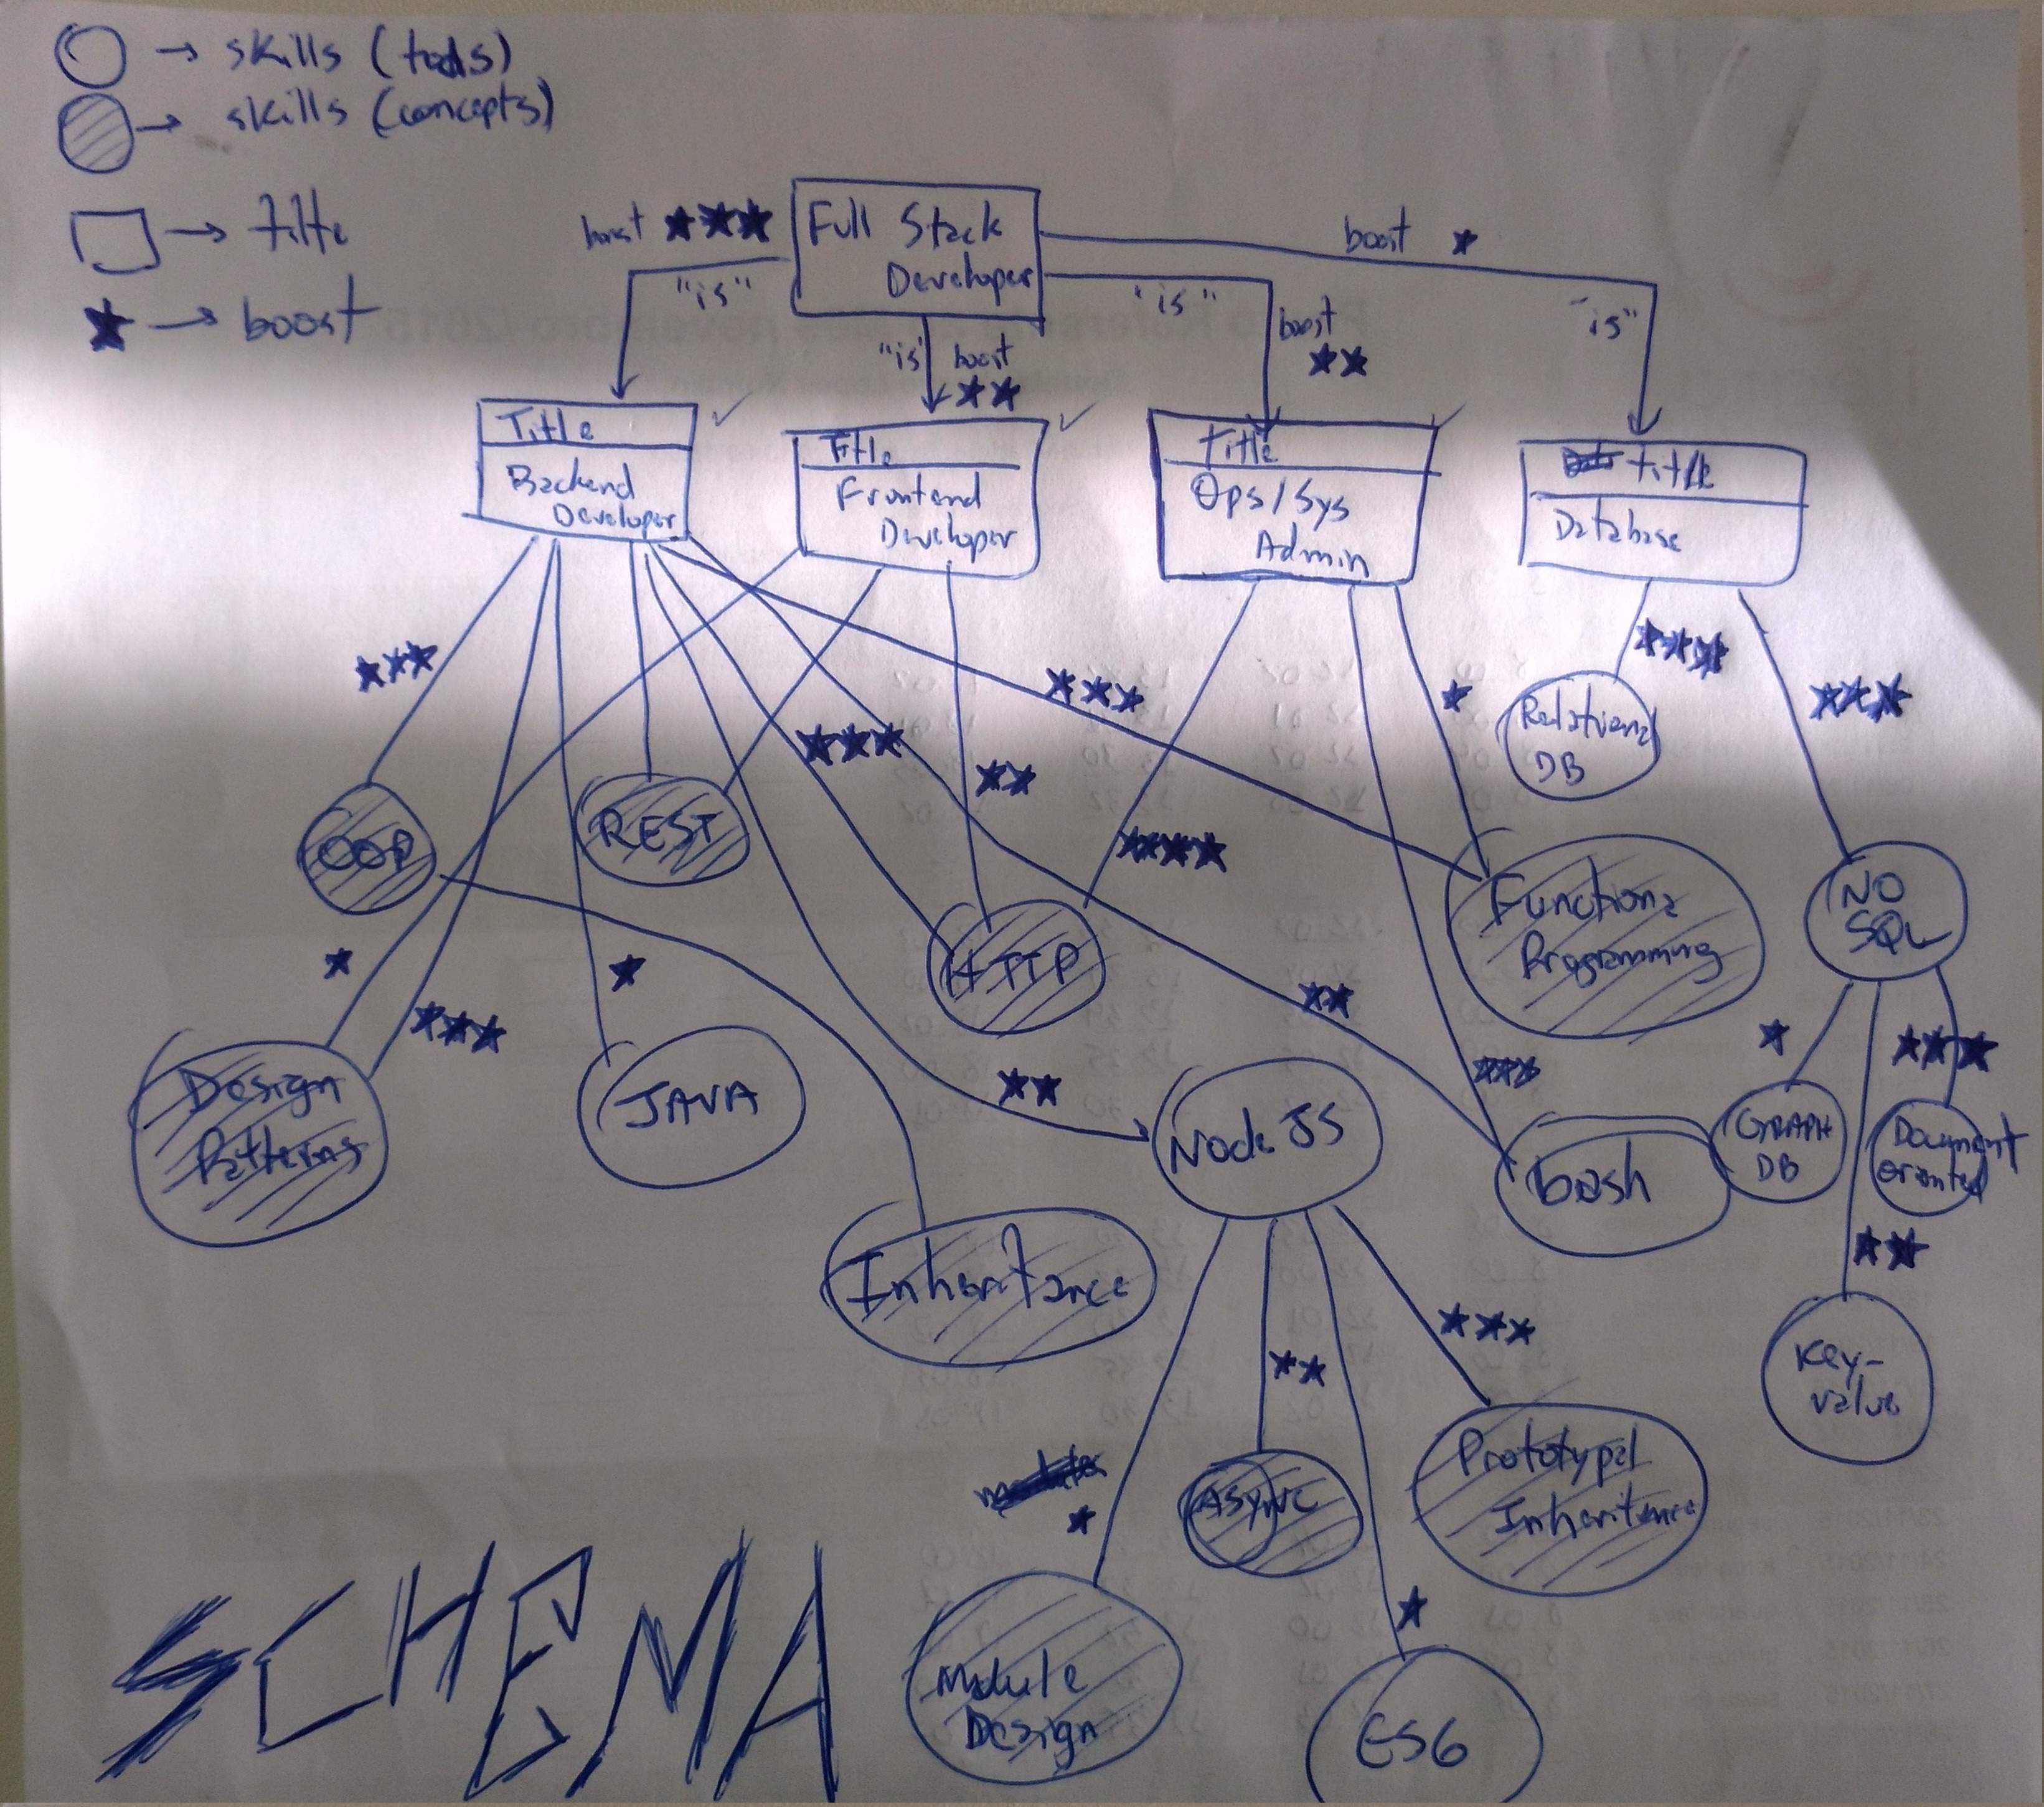 → skills (tools)
→ skills (concepts)
→ title
★ → boost
Full Stack
Developer
boost ★★★
"is"
"is"
boost
★★
"is"
boost
★★
boost ★
"is"
Title
Backend
Developer
Title
Frontend
Developer
Title
Ops/Sys
Admin
title
Database
★★★
★★★
★★★
★★
★★★★
★
★★★
★★★
Relational
DB
OOP
REST
HTTP
Functional
Programming
NO
SQL
★
★★★
★
★★
★★
★★★
★
★★★
Design
Patterns
JAVA
Node JS
bash
GRAPH
DB
Document
oriented
Inheritance
★★
★★★
★★
★
★
Key-
value
Async
Prototypal
Inheritance
Module
Design
ES6
SCHEMA